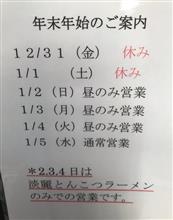 年末年始のご案内
12/31(金) 休み
1/1 (土) 休み
1/2(日)昼のみ営業
1/3(月)昼のみ営業
1/4(火)昼のみ営業
1/5(水)通常営業
*2.3.4日は
淡麗とんこつラーメン
のみでの営業です。